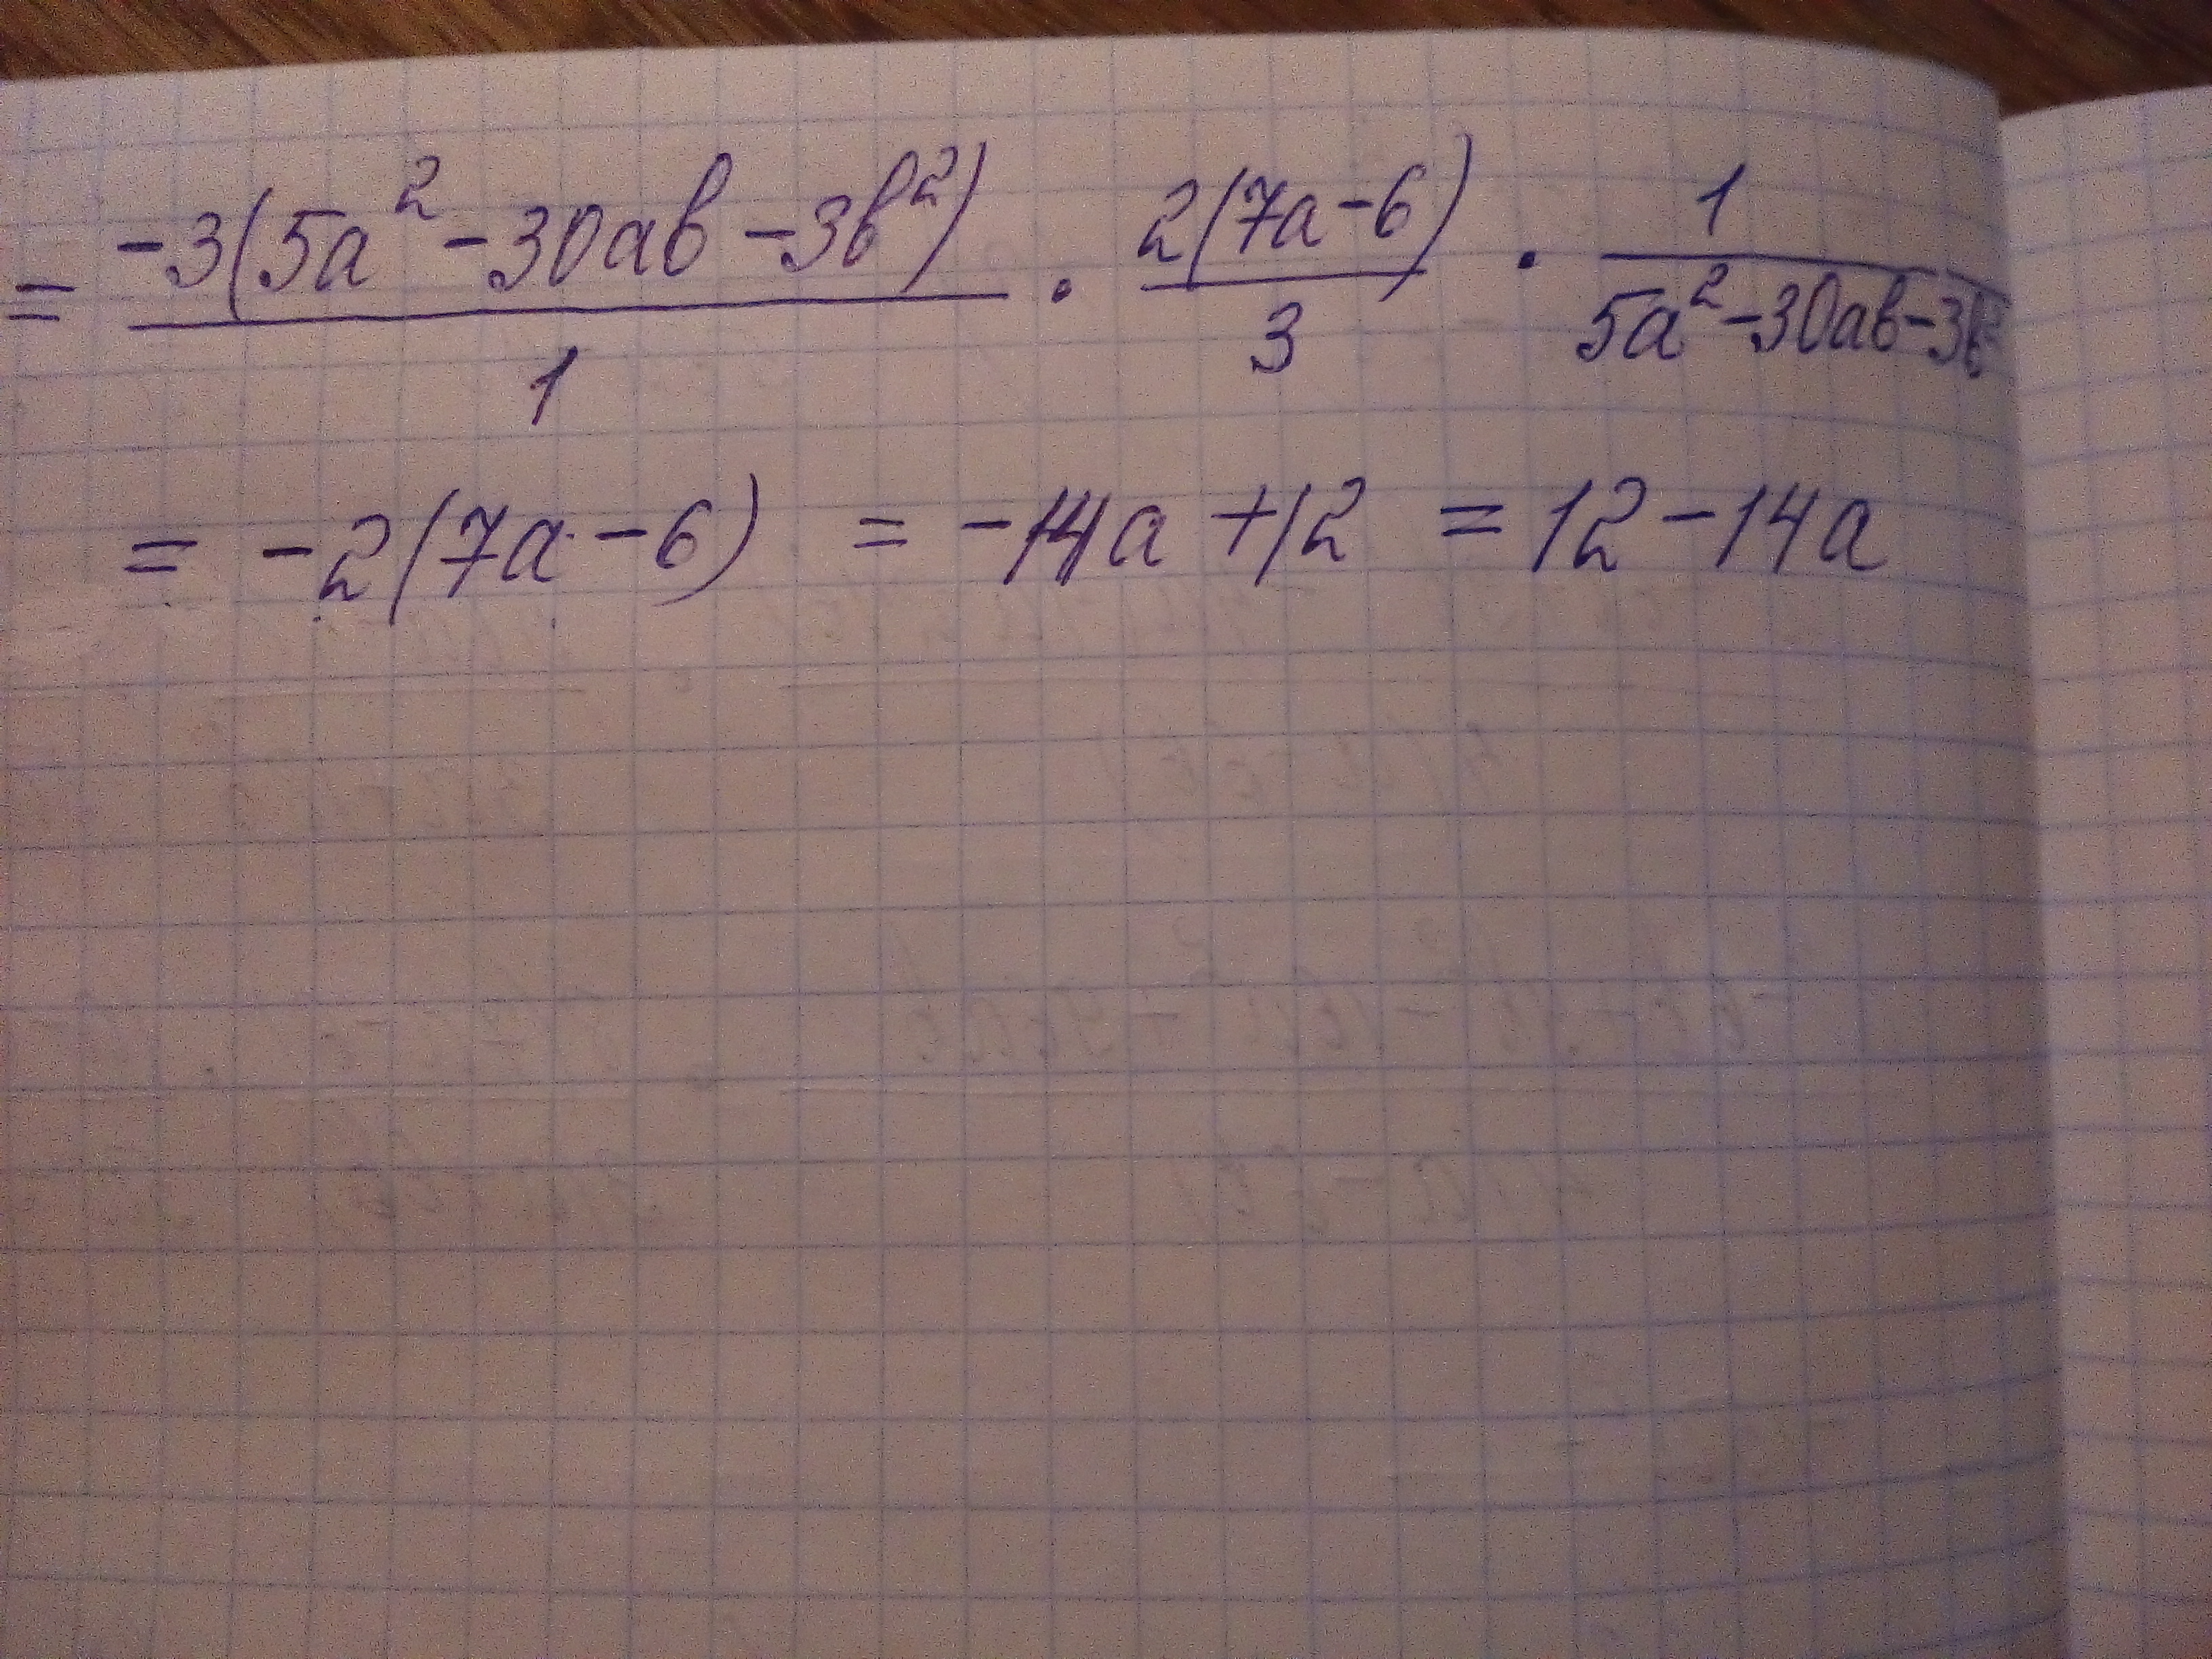 = -3(5a² - 30ab - 3b²)/1 · 2(7a - 6)/3 · 1/(5a² - 30ab - 3b²)
= -2(7a - 6) = -14a + 12 = 12 - 14a